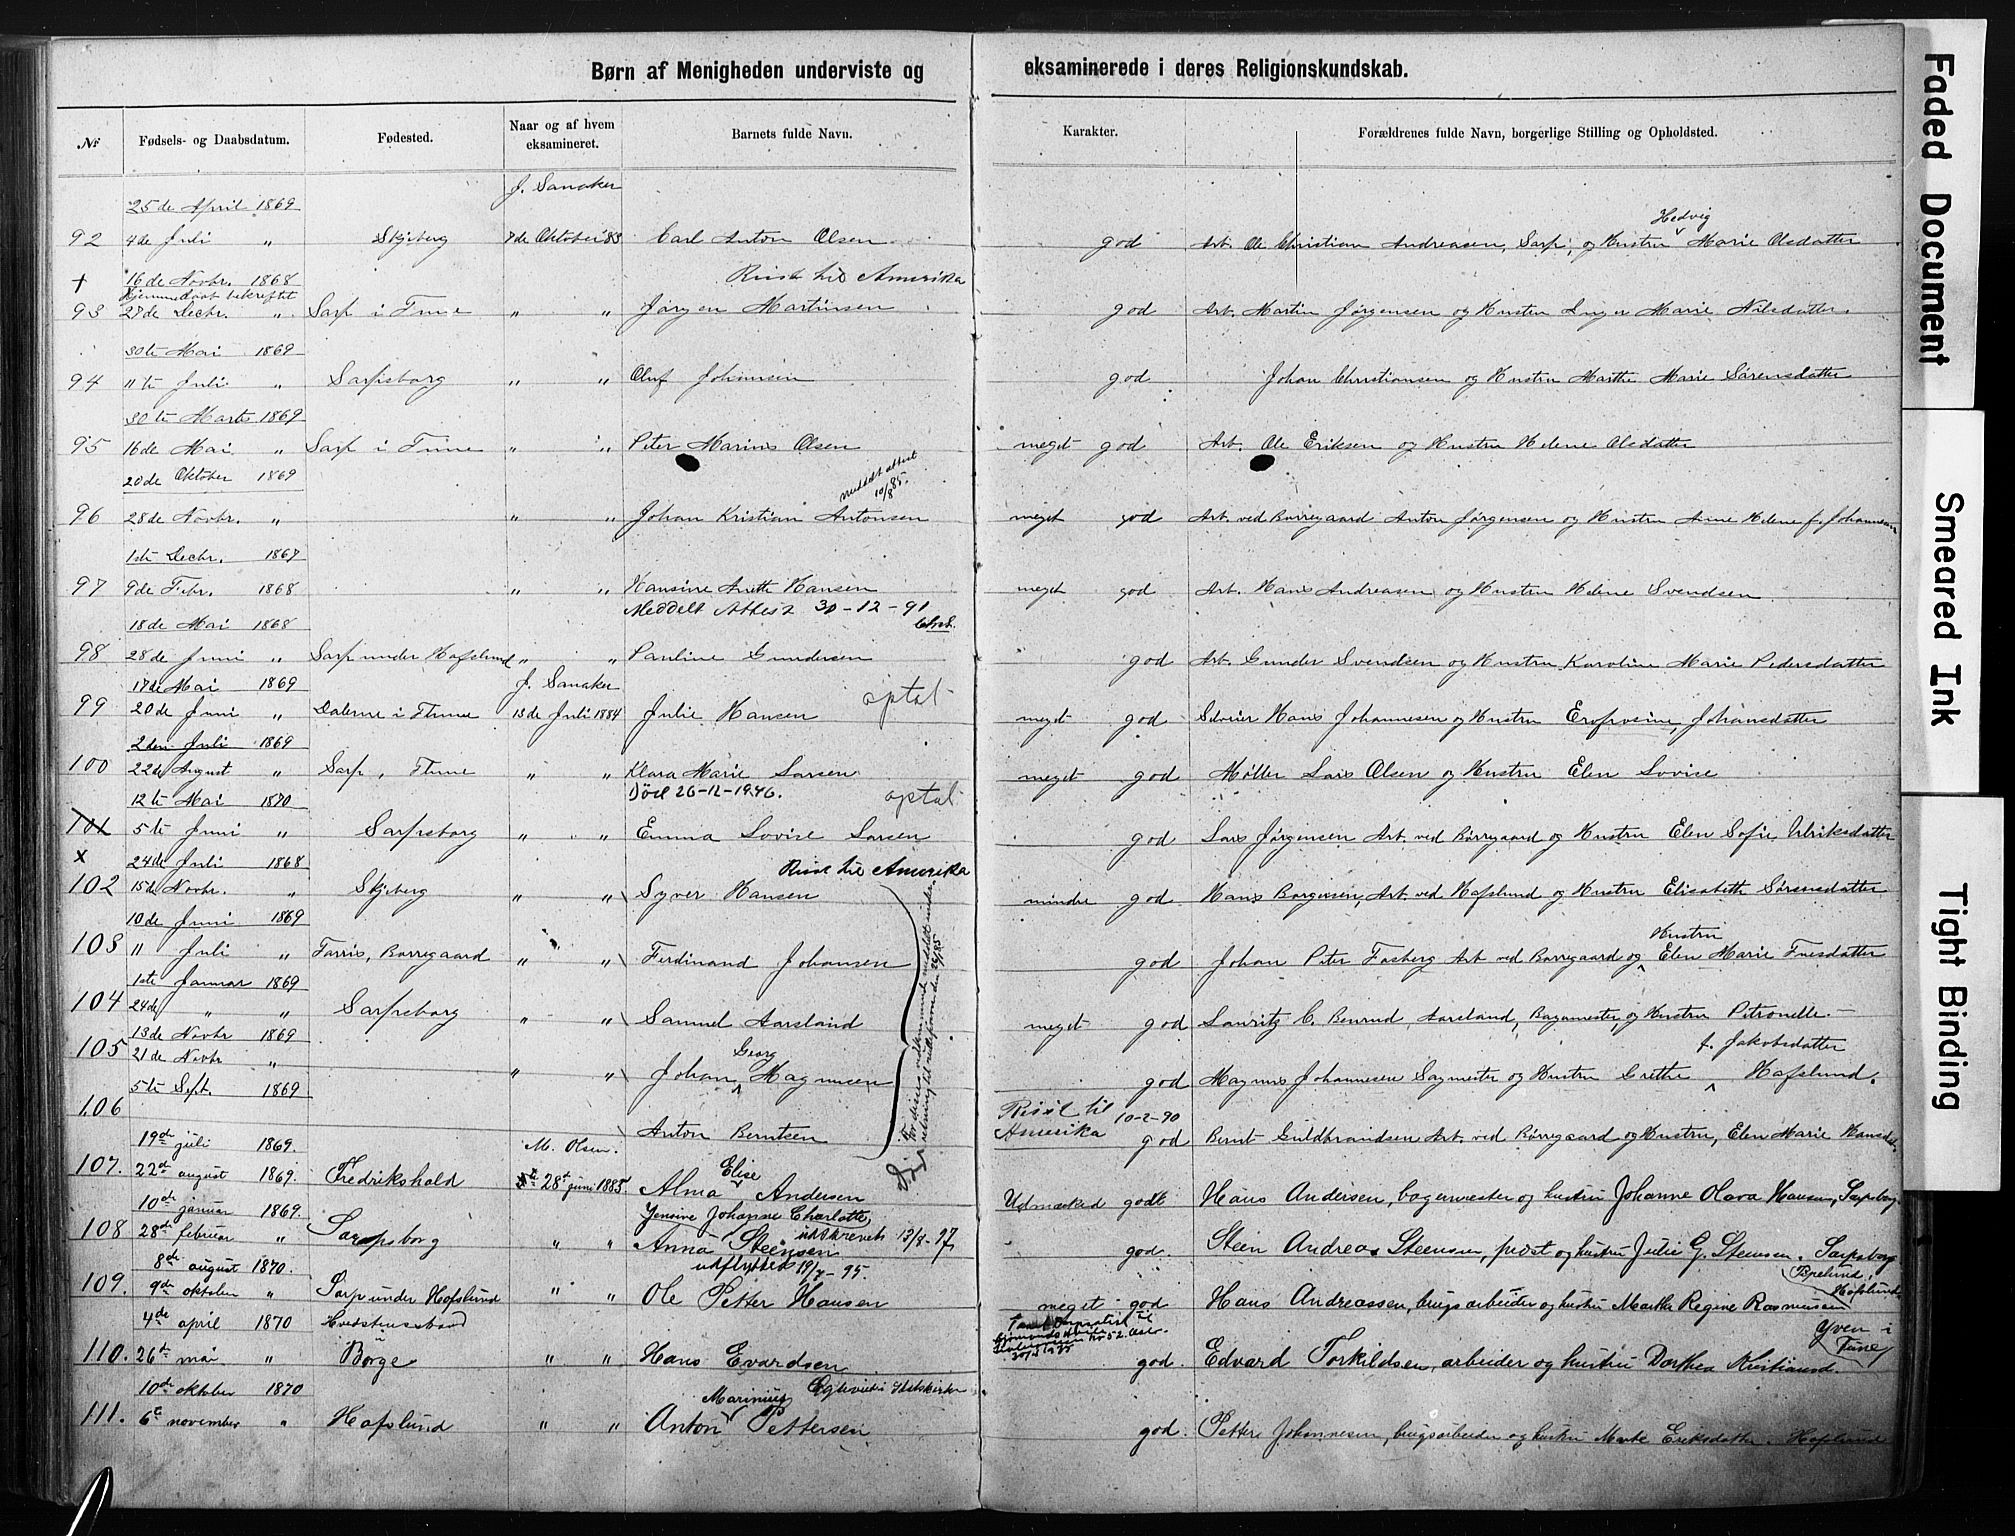 Børn af Menigheden underviste og eksaminerede i deres Religionskundskab.
№ Fødsels- og Daabsdatum. Fødested. Naar og af hvem eksamineret. Barnets fulde Navn. Karakter. Forældrenes fulde Navn, borgerlige Stilling og Opholdsted.
J. Sanaker
25de April 1869
Hedvig
92 4de Juli " Skjeberg 7de Oktober 83 Carl Anton Olsen god Arb. Ole Christian Andreasen, Sarp, og Hustru Marie Olsdatter
+ 16de Novbr. 1868 Reist til Amerika
Hjemmedaab bekreftet
93 27de Decbr. " Sarp i Tune " " Jørgen Martinsen god Arb. Martin Jørgensen og Hustru Inger Marie Nilsdatter.
30te Mai 1869
94 11te Juli " Sarpsborg " " Oluf Johansen god Johan Christiansen og Hustru Marthe Marie Sørensdatter
30te Marts 1869
95 16de Mai " Sarp i Tune " " Peter Marius Olsen meget god Arb. Ole Eriksen og Hustru Helene Olsdatter
20de Oktober 1869 meddelt attest 10/8 85.
96 28de Novbr. " " " Johan Kristian Antonsen meget god Arb. ved Borregaard Anton Jørgensen og Hustru Anne Helene f. Johannesen
1ste Decbr. 1867
97 9de Febr. 1868 " " Hansine Anette Hansen meget god Arb. Hans Andreasen og Hustru Helene Svendsen
Meddelt Attest 30-12-91
18de Mai 1868
98 28de Juni " Sarp under Hafslund " " Pauline Gundersen god Arb. Gunder Svendsen og Hustru Karoline Marie Pedersdatter
17de Mai 1869 J. Sanaker
optat
99 20de Juni " Dalerne i Thune 13de Juli 1884 Julie Hansen meget god Hans Johannesen og Hustru Johansdatter
2den Juli 1869
100 22de August " Sarp, Thune " " Klara Marie Larsen meget god Møller Lars Olsen og Hustru Elen Lovise
Død 26-12-1946. optat
12te Mai 1870
101 5te Juni " Sarpsborg " " Emma Lovise Larsen god Lars Jørgensen Arb. ved Borregaard og Hustru Elen Sofie Ulriksdatter
x 24de Juli 1868 Reist til Amerika
102 15de Novbr. " Skjeberg " " Syver Hansen mindre god Hans Borgersen, Arb. ved Hafslund og Hustru Elisabeth Sørensdatter
10de Juni 1869 Hustru
103 11 Juli " Tarris, Borregaard " " Ferdinand Johansen god Johan Peter Fosberg Arb ved Borregaard og Elen Marie
1ste Januar 1869
104 24de " " Sarpsborg " " Samuel Aarsland meget god Lauritz C. Aarsland, Bagermester, og Hustru Petronelle
13de Novbr 1869 Georg f. Jakobsdatter
105 21de Novbr " " " Johan Magnusen god Magnus Johannesen Sagmester og Hustru Grethe Hafslund.
5te Sept. 1869
Reist til Amerika 10-2-90
106 Anton Berntsen god Bernt Guldbrandsen Arb. ved Borregaard og Hustru, Elen Marie
19de juli 1869. M. Olsen. Elise
107. 22de august 1869. Fredrikshald 28de juni 1885. Alma Andersen Udmærked godt Hans Andersen, bagermester og hustru Johanne Olava Hansen, Sarpsborg
10de januar 1869. Jensine Johanne Charlotte
108. 28de februar " Sarpsborg " " Anna Steensen udskrevet 13/8-97 god Steen Andreas Steensen, og hustru Julie G. Steensen. Sarpsborg
8de august 1870. udflyttet 19/7-95.
109. 9de oktober " Sarp under Hofslund " " Ole Petter Hansen meget god Hans Andreassen, brugsarbeider og hustru Marthe Regine Rasmussen Hofslund
4de april 1870
110. 26de mai " Borge " " Hans Evardsen god. Edvard Torkildsen, arbeider og hustru Dorthea Yven i Tune
10de oktober 1870 Marinius
111. 6te november " Hafslund " " Anton Pettersen god. Petter Johannesen, brugsarbeider og hustru Marte Eriksdatter. Hafslund
Faded Document
Smeared Ink
Tight Binding